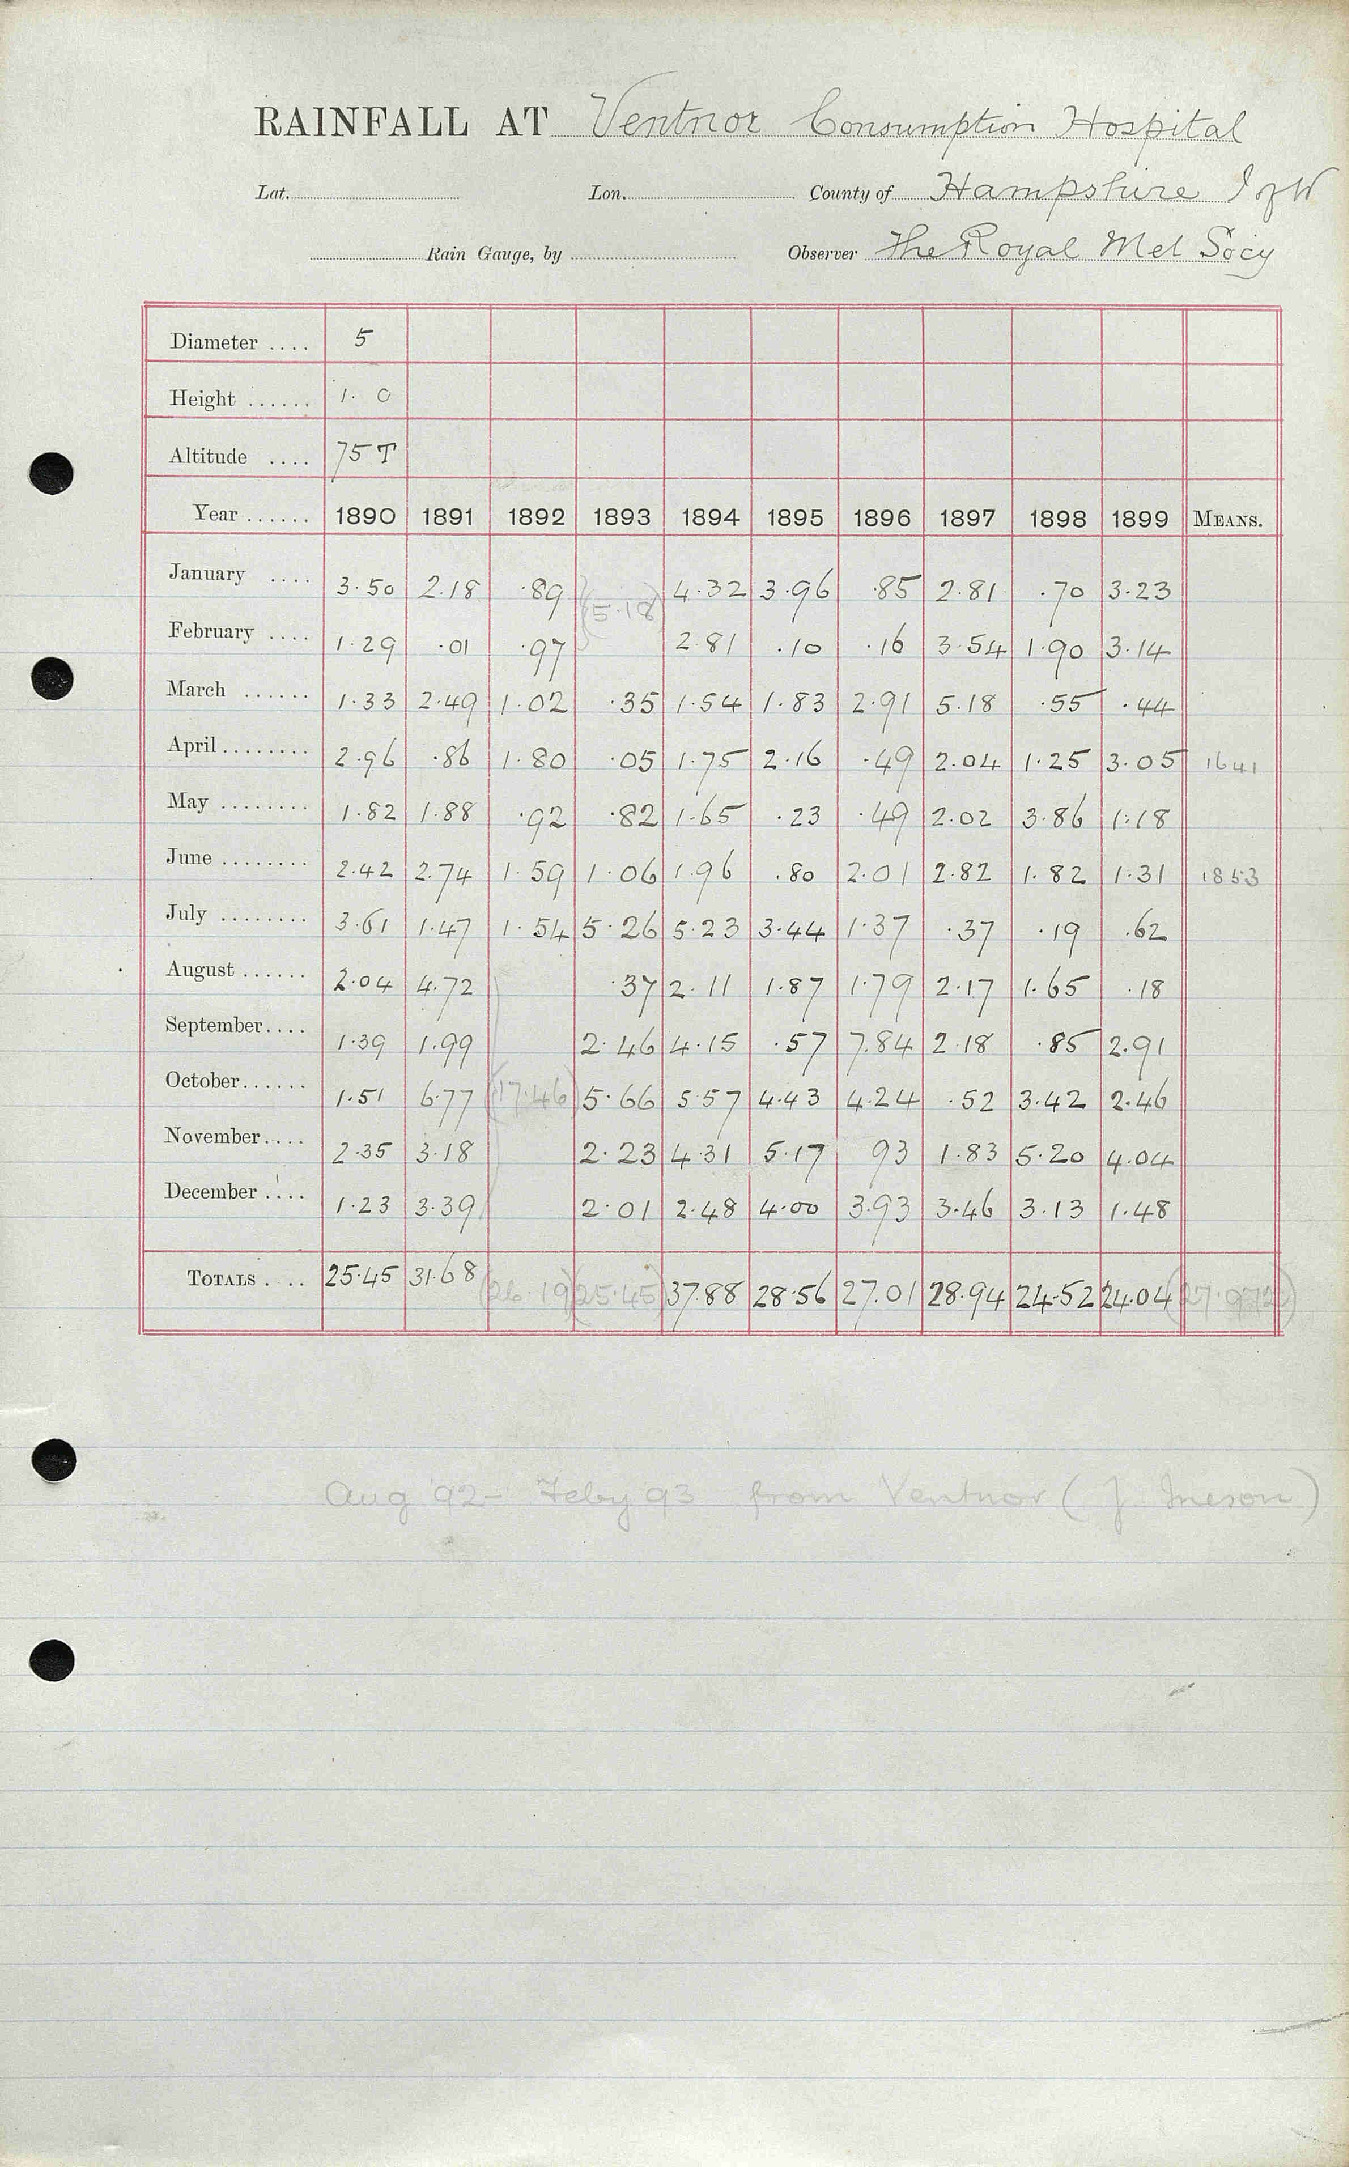 RAINFALL AT Ventnor Consumption Hospital
Lat. Lon. County of Hampshire I of W
Rain Gauge, by Observer The Royal Met Socy
Diameter .... 5
Height ...... 1. 0
Altitude .... 75 T
Year ...... 1890 1891 1892 1893 1894 1895 1896 1897 1898 1899 MEANS.
January .... 3.50 2.18 .89 (5.18) 4.32 3.96 .85 2.81 .70 3.23
February .... 1.29 .01 .97 2.81 .10 .16 3.54 1.90 3.14
March ...... 1.33 2.49 1.02 .35 1.54 1.83 2.91 5.18 .55 .44
April ........ 2.96 .86 1.80 .05 1.75 2.16 .49 2.04 1.25 3.05 1641
May ........ 1.82 1.88 .92 .82 1.65 .23 .49 2.02 3.86 1.18
June ........ 2.42 2.74 1.59 1.06 1.96 .80 2.01 2.82 1.82 1.31 1853
July ........ 3.61 1.47 1.54 5.26 5.23 3.44 1.37 .37 .19 .62
August ...... 2.04 4.72 .37 2.11 1.87 1.79 2.17 1.65 .18
September.... 1.39 1.99 2.46 4.15 .57 7.84 2.18 .85 2.91
October...... 1.51 6.77 (17.46) 5.66 5.57 4.43 4.24 .52 3.42 2.46
November.... 2.35 3.18 2.23 4.31 5.17 93 1.83 5.20 4.04
December .... 1.23 3.39 2.01 2.48 4.00 3.93 3.46 3.13 1.48
TOTALS .... 25.45 31.68 (26.19) (25.45) 37.88 28.56 27.01 28.94 24.52 24.04 (27.972)
Aug '92 - Feby 93 from Ventnor (J. Ineson)